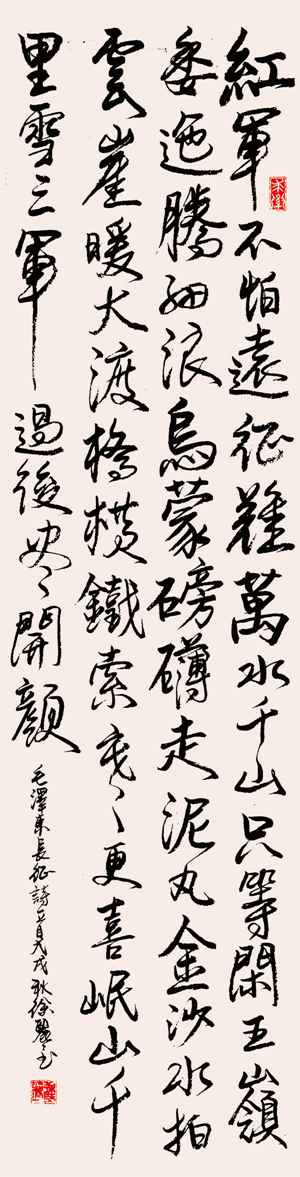 紅軍不怕遠征難萬水千山只等閑五嶺
委迤騰細浪烏蒙磅礴走泥丸金沙水拍
雲崖暖大渡橋橫鐵索寒更喜岷山千
里雪三軍過後尽開顏
毛澤東長征詩一首戊戌秋徐